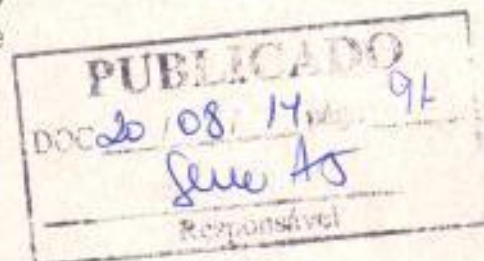 PUBLICADO
DOC 20 / 08 / 14, pág. 91
Responsável